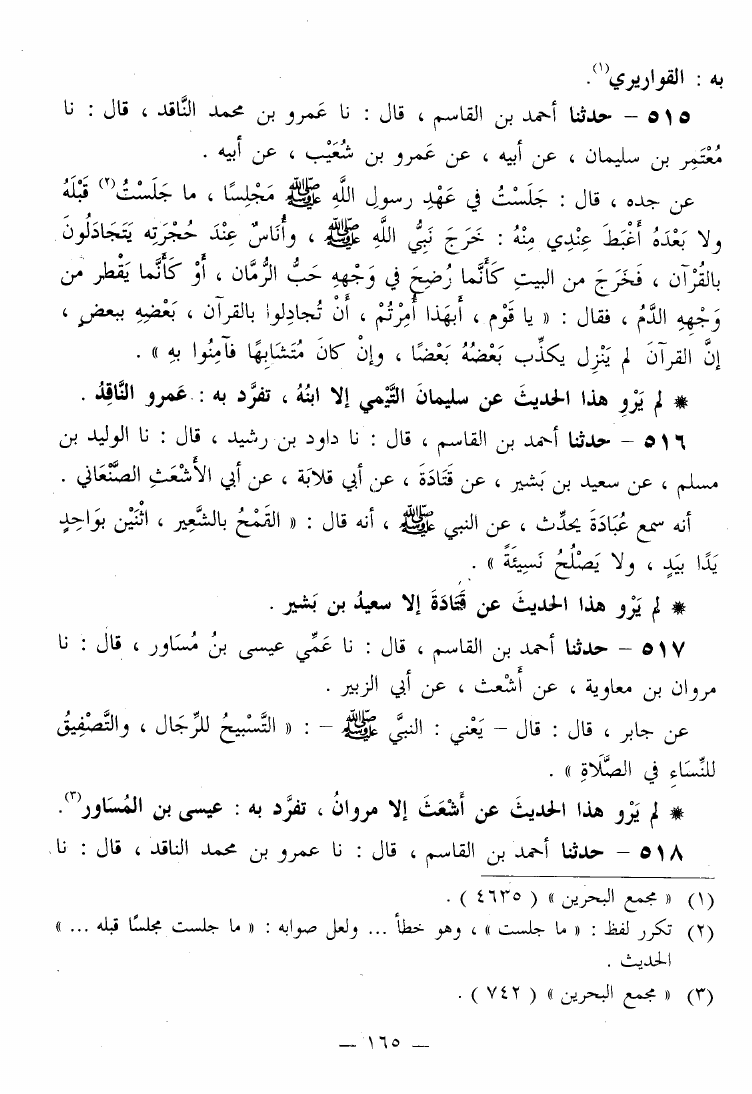 به : القواريري(١).
٥١٥ – حدثنا أحمد بن القاسم ، قال : نا عَمرو بن محمد النَّاقد ، قال : نا
مُعْتَمِر بن سليمان ، عن أبيه ، عن عَمرو بن شُعَيْب ، عن أبيه .
عن جده ، قال : جَلَسْتُ في عَهْدِ رسولِ اللَّهِ ﷺ مَجْلِسًا ، ما جَلَسْتُ(٢) قَبْلَهُ
ولا بَعْدَهُ أَغْبَطَ عِنْدِي مِنْهُ : خَرَجَ نَبِيُّ اللَّهِ ﷺ ، وأُنَاسٌ عِنْدَ حُجْرَتِه يَتَجَادَلُونَ
بالقُرْآن ، فَخَرَجَ من البيتِ كَأَنَّما رُضِخَ في وَجْهِهِ حَبُّ الرُّمَّان ، أَوْ كَأَنَّما يَقْطر من
وَجْهِهِ الدَّمُ ، فقال : « يا قَوْم ، أَبهَذا أُمِرْتُمْ ، أَنْ تُجادِلوا بالقرآن ، بَعْضِهِ ببعضٍ ،
إنَّ القرآنَ لم يَنْزِل يكذِّب بَعْضُهُ بَعْضًا ، وإنْ كانَ مُتَشَابِهًا فآمِنُوا بِهِ » .
* لم يَرْوِ هذا الحديثَ عن سليمانَ التَّيْمي إلا ابنُهُ ، تفرَّد به : عَمرو النَّاقِدُ .
٥١٦ – حدثنا أحمد بن القاسم ، قال : نا داود بن رشيد ، قال : نا الوليد بن
مسلم ، عن سعيد بن بَشير ، عن قَتَادَةَ ، عن أبي قلابَة ، عن أبي الأَشْعَثِ الصَّنْعَاني .
أنه سمع عُبَادَةَ يحدِّث ، عن النبي ﷺ ، أنه قال : « القَمْحُ بالشَّعِير ، اثْنَيْن بوَاحِدٍ
يَدًا بيَدٍ ، ولا يَصْلُحُ نَسِيئَةً » .
* لم يَرْو هذا الحديثَ عن قَتَادَةَ إلا سعيدُ بن بَشير .
٥١٧ – حدثنا أحمد بن القاسم ، قال : نا عَمِّي عيسى بنُ مُسَاور ، قال : نا
مروان بن معاوية ، عن أَشْعث ، عن أبي الزبير .
عن جابر ، قال : قال – يَعْني : النبيَّ ﷺ – : « التَّسْبيحُ للرِّجَال ، والتَّصْفِيقُ
للنِّسَاءِ في الصَّلَاةِ » .
* لم يَرْو هذا الحديثَ عن أَشْعَثَ إلا مروانُ ، تفرَّد به : عيسى بن المُسَاور(٣).
٥١٨ – حدثنا أحمد بن القاسم ، قال : نا عمرو بن محمد الناقد ، قال : نا
(١) « مجمع البحرين » ( ٤٦٣٥ ) .
(٢) تكرر لفظ : « ما جلست » ، وهو خطأ ... ولعل صوابه : « ما جلست مجلسًا قبله ... »
الحديث .
(٣) « مجمع البحرين » ( ٧٤٢ ) .
— ١٦٥ —